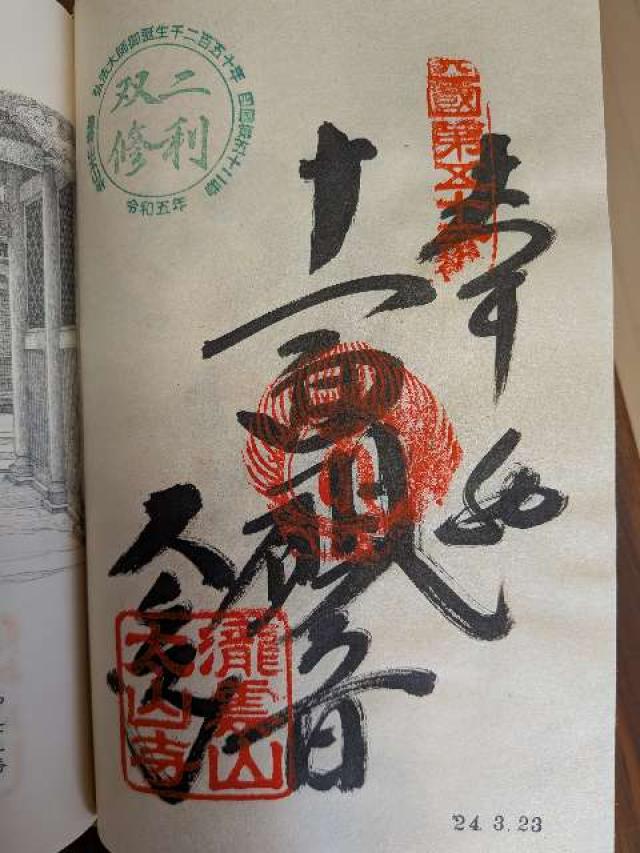 四國第五十二番
奉納
十一面観音
太山寺
瀧雲山
太山寺
弘法大師御誕生千二百五十年
四国第五十二番
二利
双修
令和五年
24.3.23